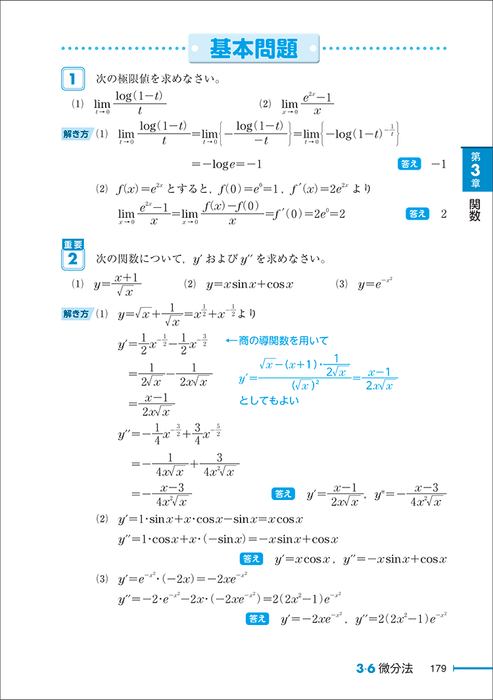 基本問題
1 次の極限値を求めなさい。
(1) lim_{t→0} log(1−t)/t (2) lim_{x→0} (e^{2x}−1)/x
解き方 (1) lim_{t→0} log(1−t)/t=lim_{t→0}{−log(1−t)/−t}=lim_{t→0}{−log(1−t)^{−1/t}}
=−log e=−1 答え −1
(2) f(x)=e^{2x}とすると，f(0)=e^0=1，f′(x)=2e^{2x}より
lim_{x→0} (e^{2x}−1)/x=lim_{x→0} (f(x)−f(0))/x=f′(0)=2e^0=2 答え 2
第3章 関数
重要
2 次の関数について，y′およびy′′を求めなさい。
(1) y=(x+1)/√x (2) y=xsinx+cosx (3) y=e^{−x^2}
解き方 (1) y=√x+1/√x=x^{1/2}+x^{−1/2}より
y′=1/2 x^{−1/2}−1/2 x^{−3/2} ←商の導関数を用いて
=1/(2√x)−1/(2x√x) y′=(√x−(x+1)·1/(2√x))/(√x)^2=(x−1)/(2x√x)
=(x−1)/(2x√x) としてもよい
y′′=−1/4 x^{−3/2}+3/4 x^{−5/2}
=−1/(4x√x)+3/(4x^2√x)
=−(x−3)/(4x^2√x) 答え y′=(x−1)/(2x√x)，y′′=−(x−3)/(4x^2√x)
(2) y′=1·sinx+x·cosx−sinx=xcosx
y′′=1·cosx+x·(−sinx)=−xsinx+cosx
答え y′=xcosx，y′′=−xsinx+cosx
(3) y′=e^{−x^2}·(−2x)=−2xe^{−x^2}
y′′=−2·e^{−x^2}−2x·(−2xe^{−x^2})=2(2x^2−1)e^{−x^2}
答え y′=−2xe^{−x^2}，y′′=2(2x^2−1)e^{−x^2}
3·6 微分法 179